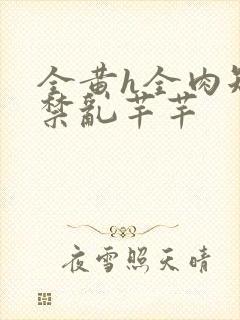 全黄h全肉短
禁乱芊芊
夜雪照天晴